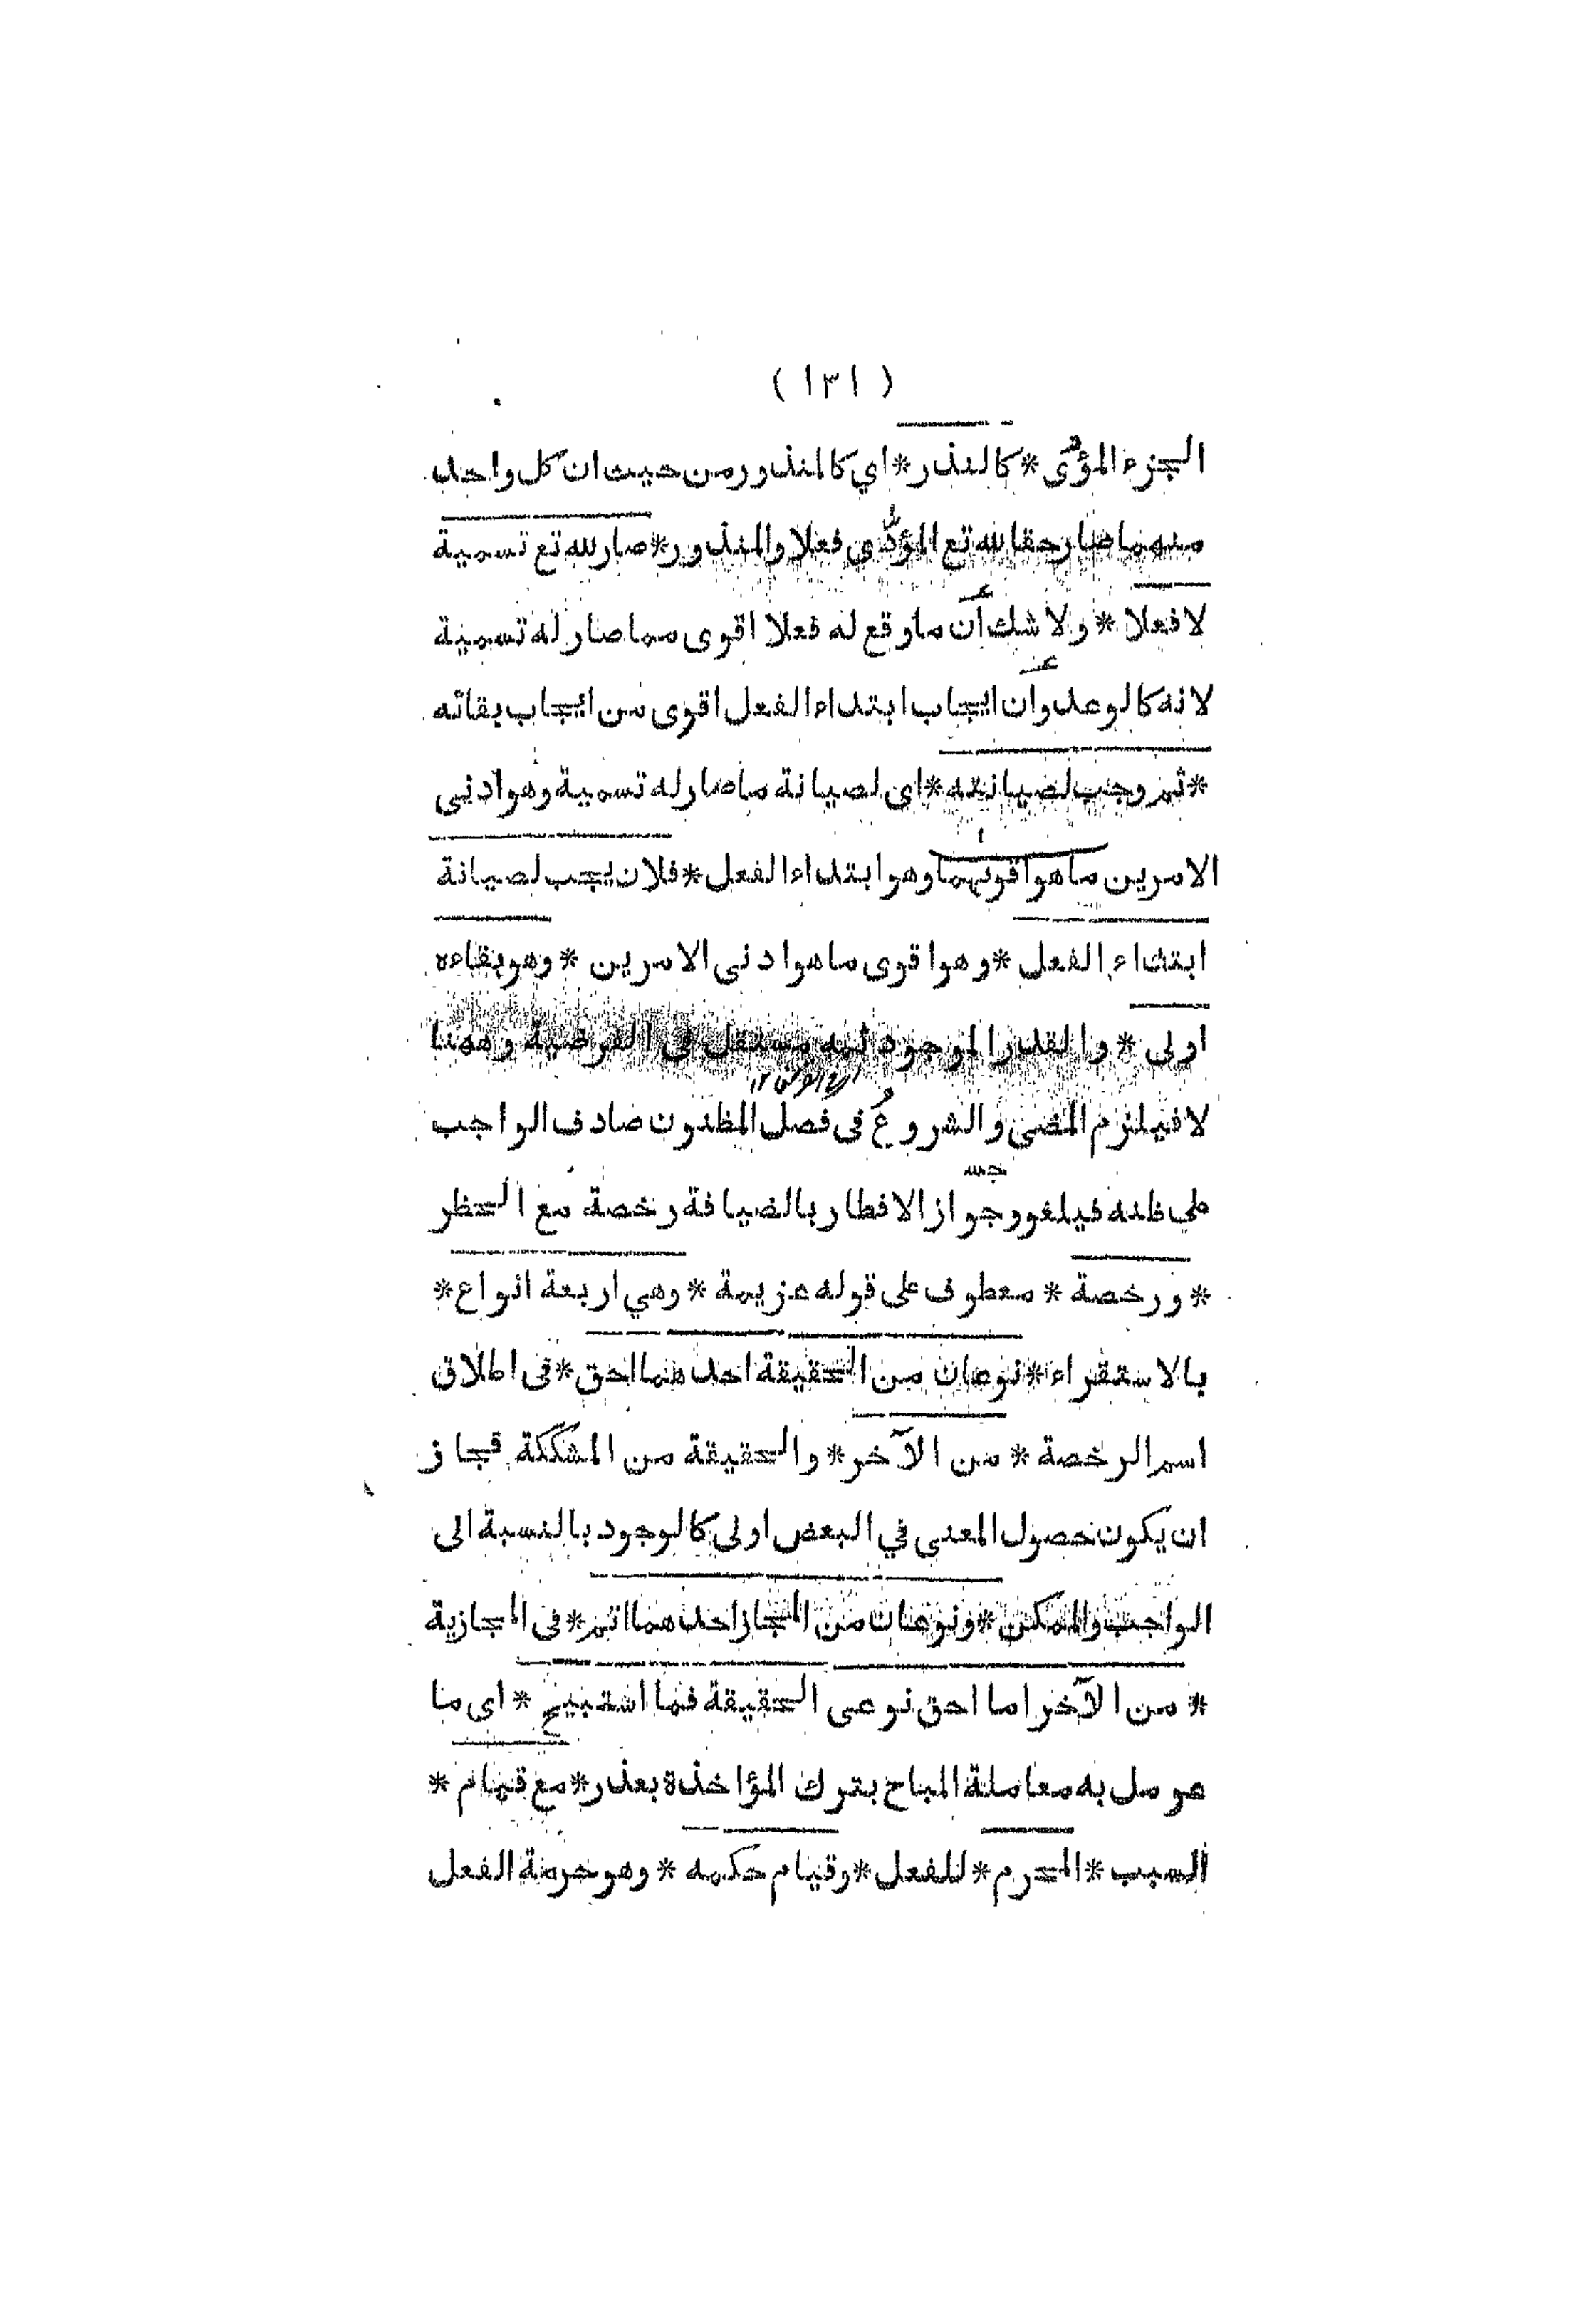 ( ١٣١ )
الجزء المؤدى * كالنذر * اي كالمنذور من حيث ان كل واحد
منهما صار حقا لله تع المؤدى فعلا والمنذور * صار لله تع تسمية
لا فعلا * ولا شك ان ما وقع له فعلا اقوى مما صار له تسمية
لانه كالوعد وان ايجاب ابتداء الفعل اقوى من ايجاب بقائه
* ثم وجب لصيانته * اى لصيانة ما صار له تسمية وهو ادنى
الامرين ما هو اقوىهما وهو ابتداء الفعل * فلان يجب لصيانة
ابتداء الفعل * وهو اقوى ما هو ادنى الامرين * وهو بقاءه
اولى * والقدر الموجود ثمه مستقل في الفرضية وههنا
لا فيلزم المضى والشروع فى فصل المظنون صادف الواجب
على ظنه فيلغو وجواز الافطار بالضيافة رخصة مع الحظر
* ورخصة * معطوف على قوله عزيمة * وهي اربعة انواع *
بالاستقراء * نوعان من الحقيقة احدهما احق * فى اطلاق
اسم الرخصة * من الآخر * والحقيقة من المشككة فجاز
ان يكون حصول المعنى في البعض اولى كالوجود بالنسبة الى
الواجب والممكن * ونوعان من المجاز احدهما اتم * فى المجازية
* من الآخر اما احق نوعى الحقيقة فما استبيح * اى ما
عومل به معاملة المباح بترك المؤاخذة بعذر * مع قيام *
السبب * المحرم * للفعل * وقيام حكمه * وهو حرمة الفعل